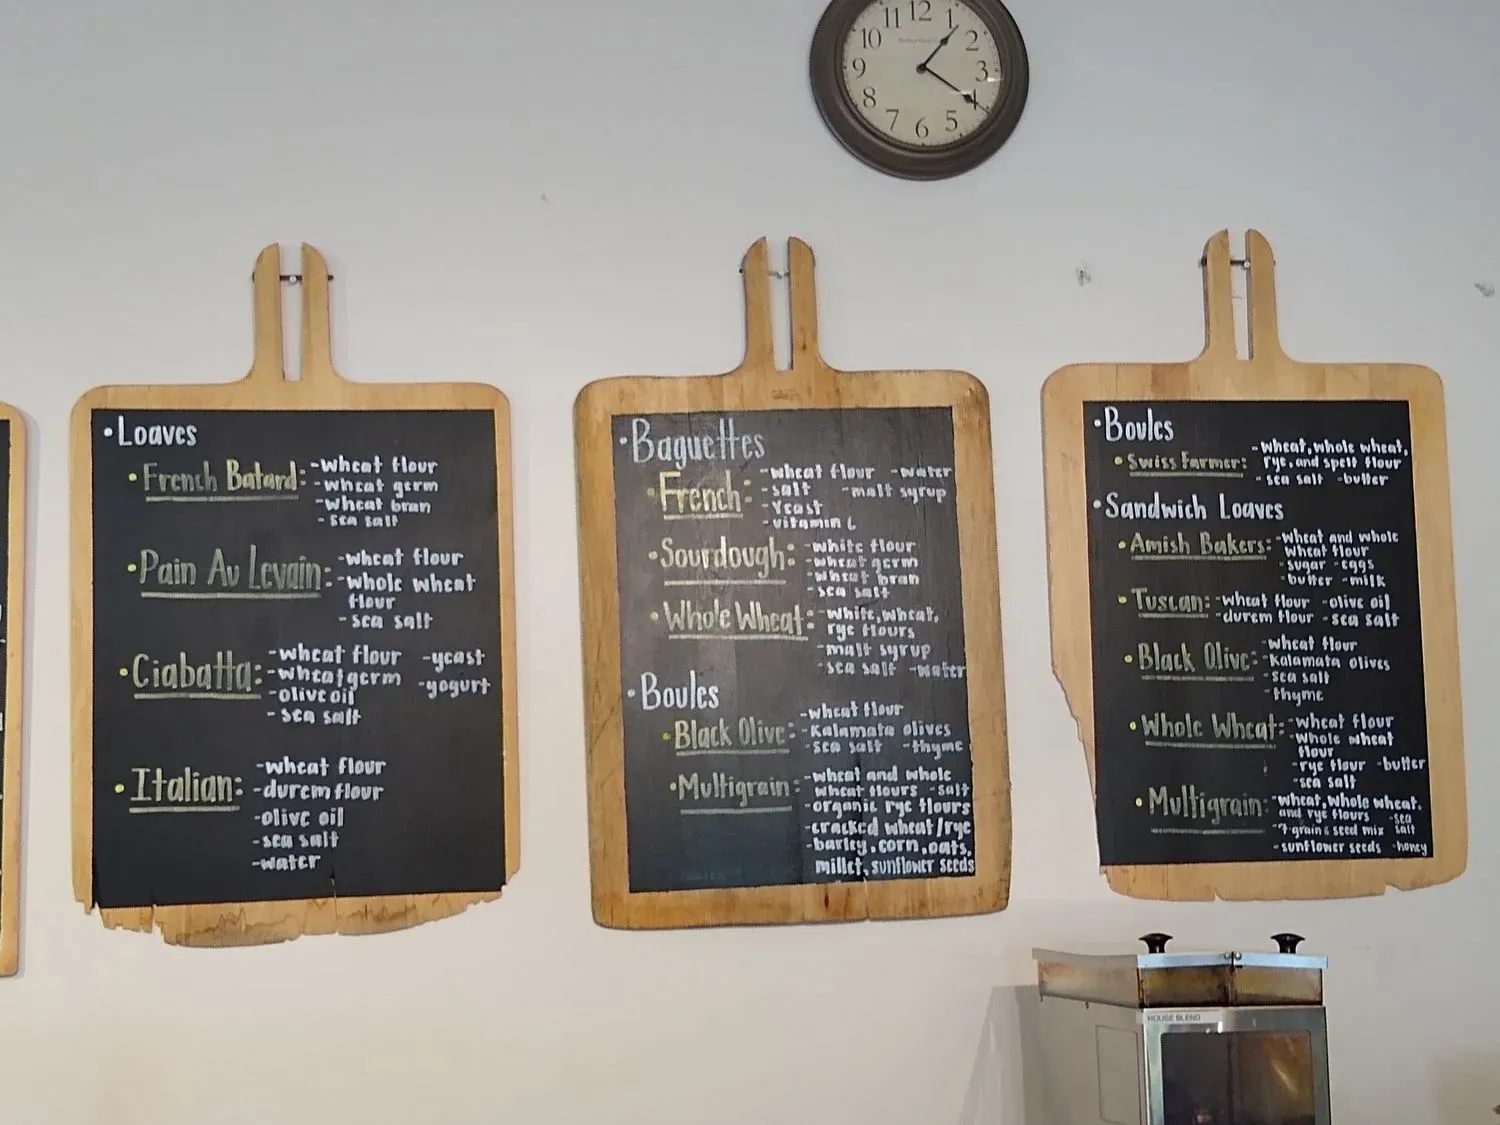 12
1
2
3
4
5
6
7
8
9
10
11
•Loaves
•French Batard: -wheat flour
-wheat germ
-wheat bran
-sea salt
•Pain Au Levain: -wheat flour
-whole wheat
flour
-sea salt
•Ciabatta: -wheat flour -yeast
-wheat germ -yogurt
-olive oil
-sea salt
•Italian: -wheat flour
-durem flour
-olive oil
-sea salt
-water
•Baguettes
•French: -wheat flour -water
-salt -malt syrup
-Yeast
-vitamin C
•Sourdough: -white flour
-wheat germ
-wheat bran
-sea salt
•Whole Wheat: -white, wheat,
rye flours
-malt syrup
-sea salt -water
•Boules
•Black Olive: -wheat flour
-Kalamata olives
-sea salt -thyme
•Multigrain: -wheat and whole
wheat flours -salt
-organic rye flours
-cracked wheat/rye
-barley, corn, oats,
millet, sunflower seeds
•Boules
•Swiss Farmer: -wheat, whole wheat,
rye, and spelt flour
-sea salt -butter
•Sandwich Loaves
•Amish Bakers: -wheat and whole
wheat flour
-sugar -eggs
-butter -milk
•Tuscan: -wheat flour -olive oil
-durem flour -sea salt
•Black Olive: -wheat flour
-Kalamata olives
-sea salt
-thyme
•Whole Wheat: -wheat flour
-whole wheat
flour
-rye flour -butter
-sea salt
•Multigrain: -wheat, whole wheat,
and rye flours -sea
-7 grain & seed mix salt
-sunflower seeds -honey
HOUSE BLEND